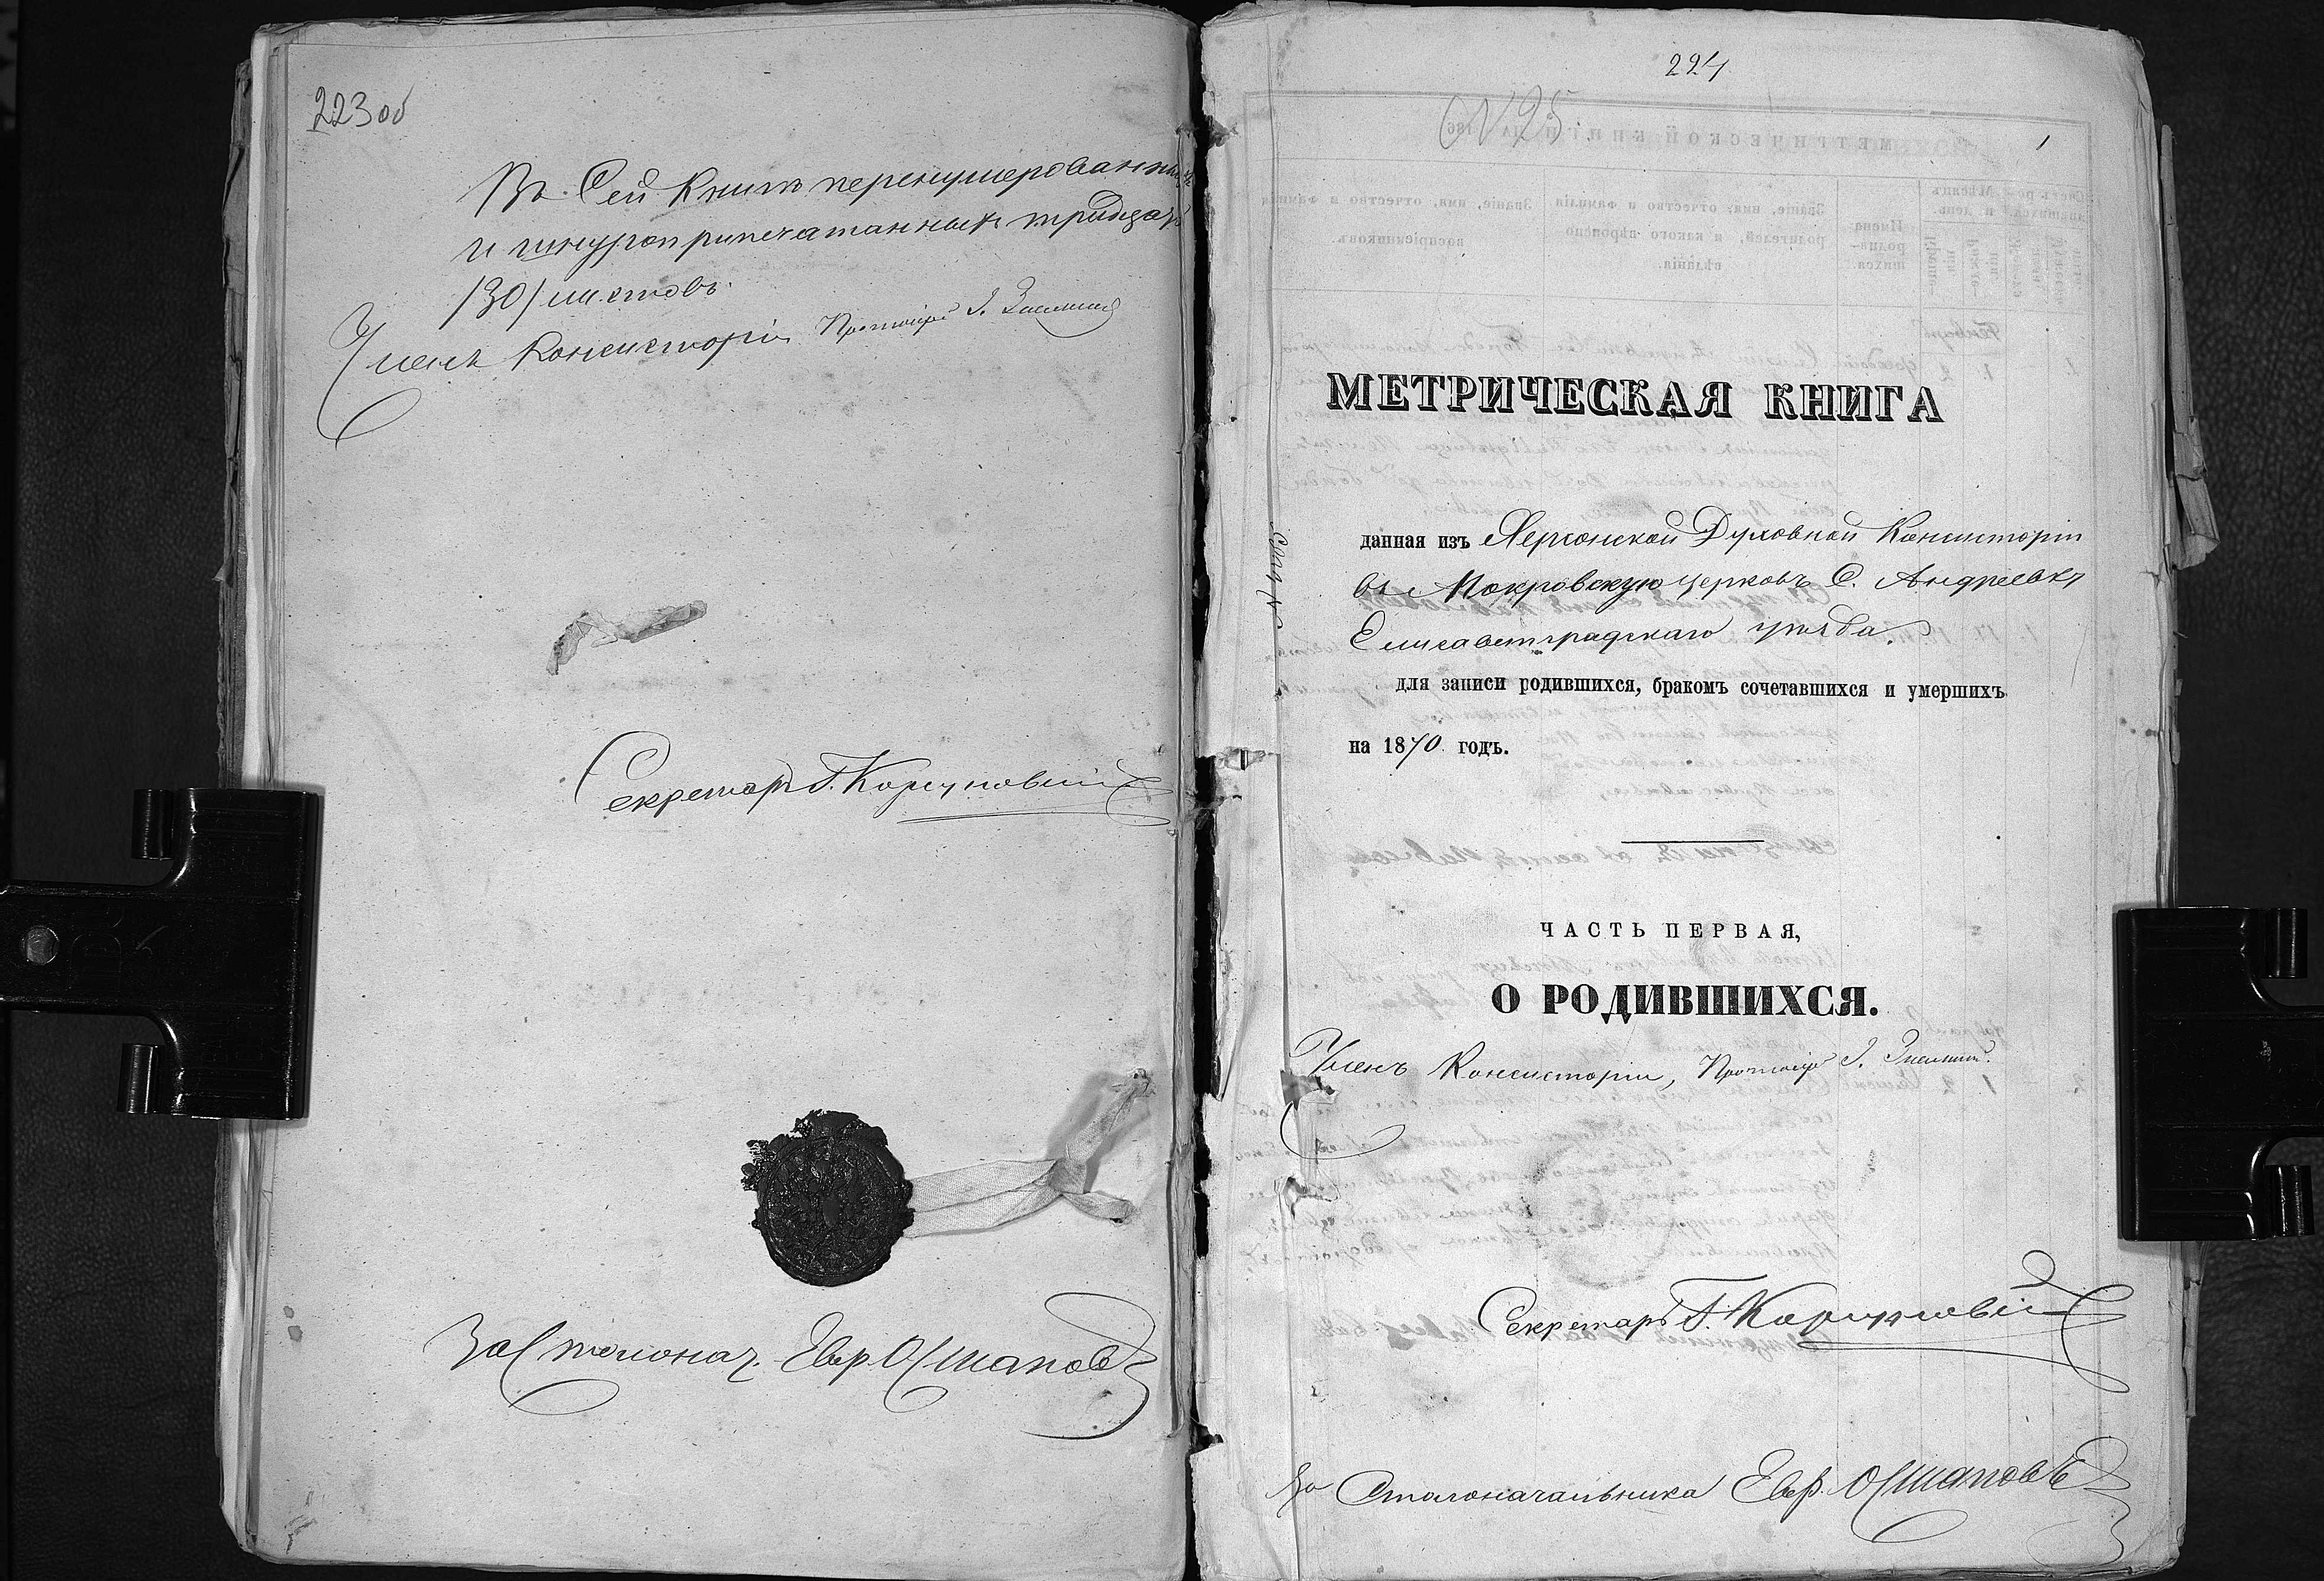 223 об
Въ Сей Книгѣ перенумерованныхъ
и шнуроприпечатанныхъ тридцать
/30/ листовъ.
Членъ Консисторіи Протоіерей І.
Секретарь Г. Корчуновскій
За Столонач. Евр. Ошаповъ
224
№ 25
1
МЕТРИЧЕСКАЯ КНИГА
данная изъ Херсонской Духовной Консисторіи
въ Покровскую церковь С. Андреевки
Елисаветградскаго уѣзда.
для записи родившихся, бракомъ сочетавшихся и умершихъ
на 1870 годъ.
ЧАСТЬ ПЕРВАЯ,
О РОДИВШИХСЯ.
Членъ Консисторіи, Протоіерей І.
Секретарь Г. Корчуновскій
За Столоначальника Евр. Ошаповъ